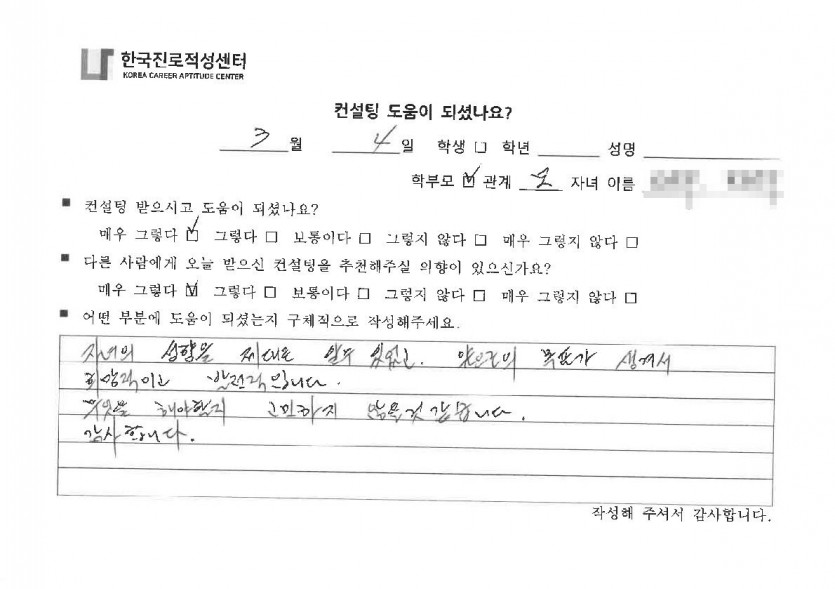 한국진로적성센터
KOREA CAREER APTITUDE CENTER
컨설팅 도움이 되셨나요?
3 월 4 일 학생 □ 학년 성명
학부모 ☑ 관계 모 자녀 이름
■ 컨설팅 받으시고 도움이 되셨나요?
매우 그렇다 ☑ 그렇다 □ 보통이다 □ 그렇지 않다 □ 매우 그렇지 않다 □
■ 다른 사람에게 오늘 받으신 컨설팅을 추천해주실 의향이 있으신가요?
매우 그렇다 ☑ 그렇다 □ 보통이다 □ 그렇지 않다 □ 매우 그렇지 않다 □
■ 어떤 부분에 도움이 되셨는지 구체적으로 작성해주세요.
자녀의 성향을 제대로 알수 있었고. 앞으로의 목표가 생겨서
희망적이고 발전적입니다.
무엇을 해야할지 고민하지 않을것 같습니다.
감사합니다.
작성해 주셔서 감사합니다.